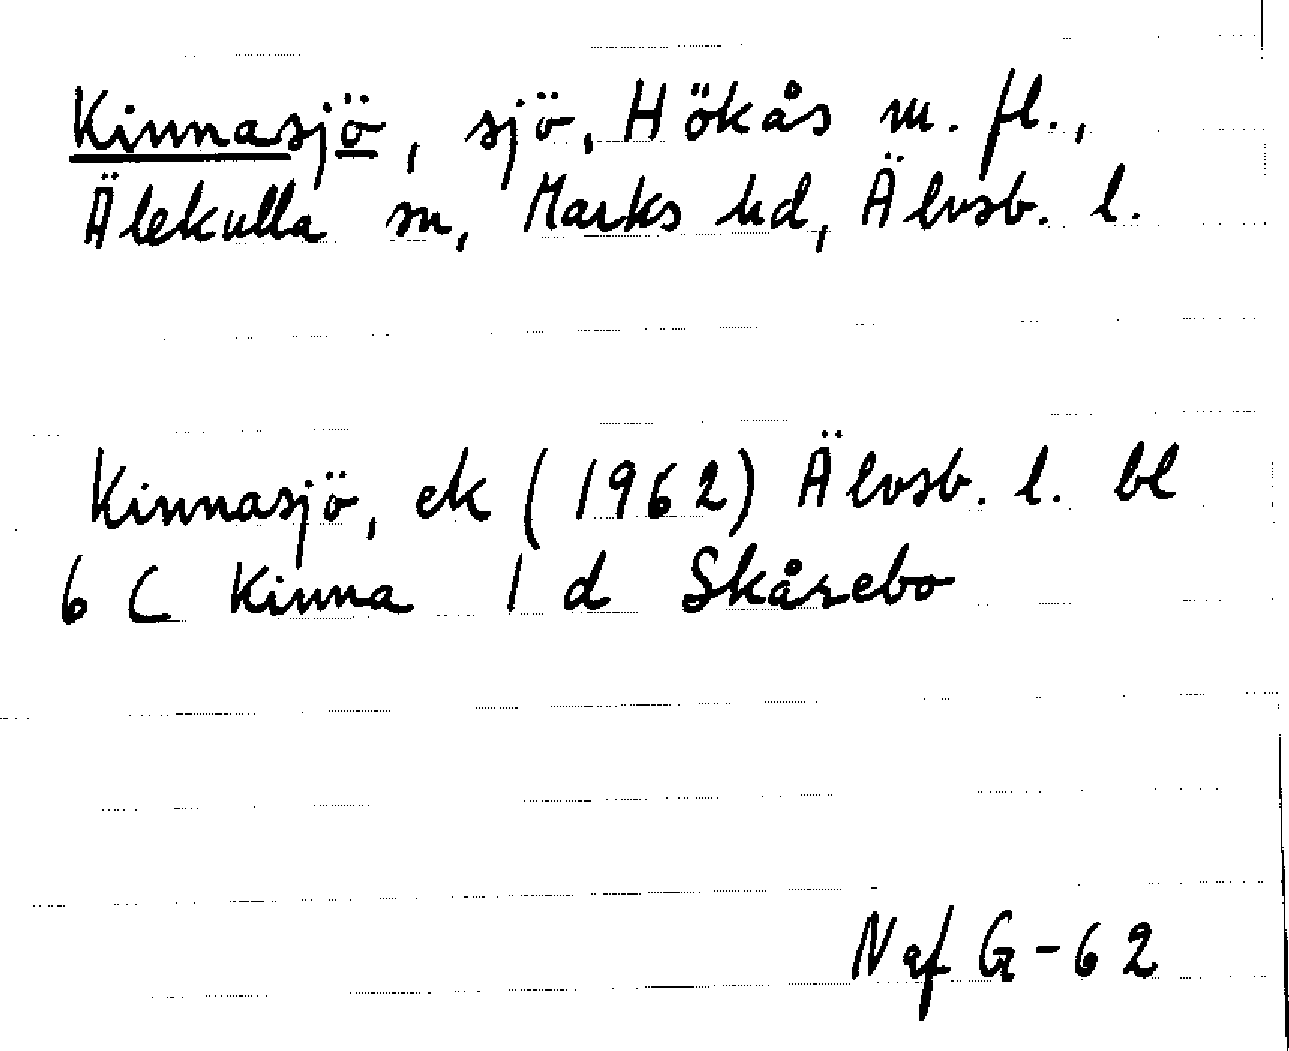 Kinnasjö, sjö, Hökås m. fl.,
Älekulla sn, Marks hd, Älvsb. l.
Kinnasjö, ek (1962) Älvsb. l. bl
6 C Kinna 1 d Skårebo
Naf G-62